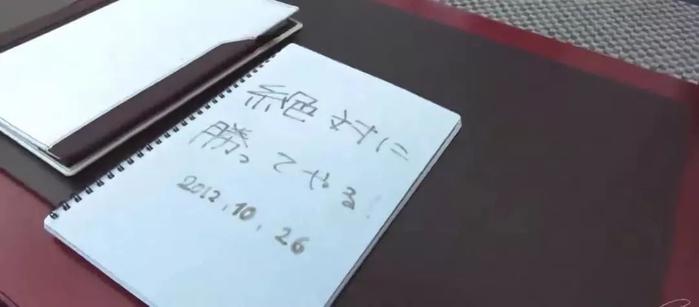 絶対に
勝ってやる!
2012,10,26